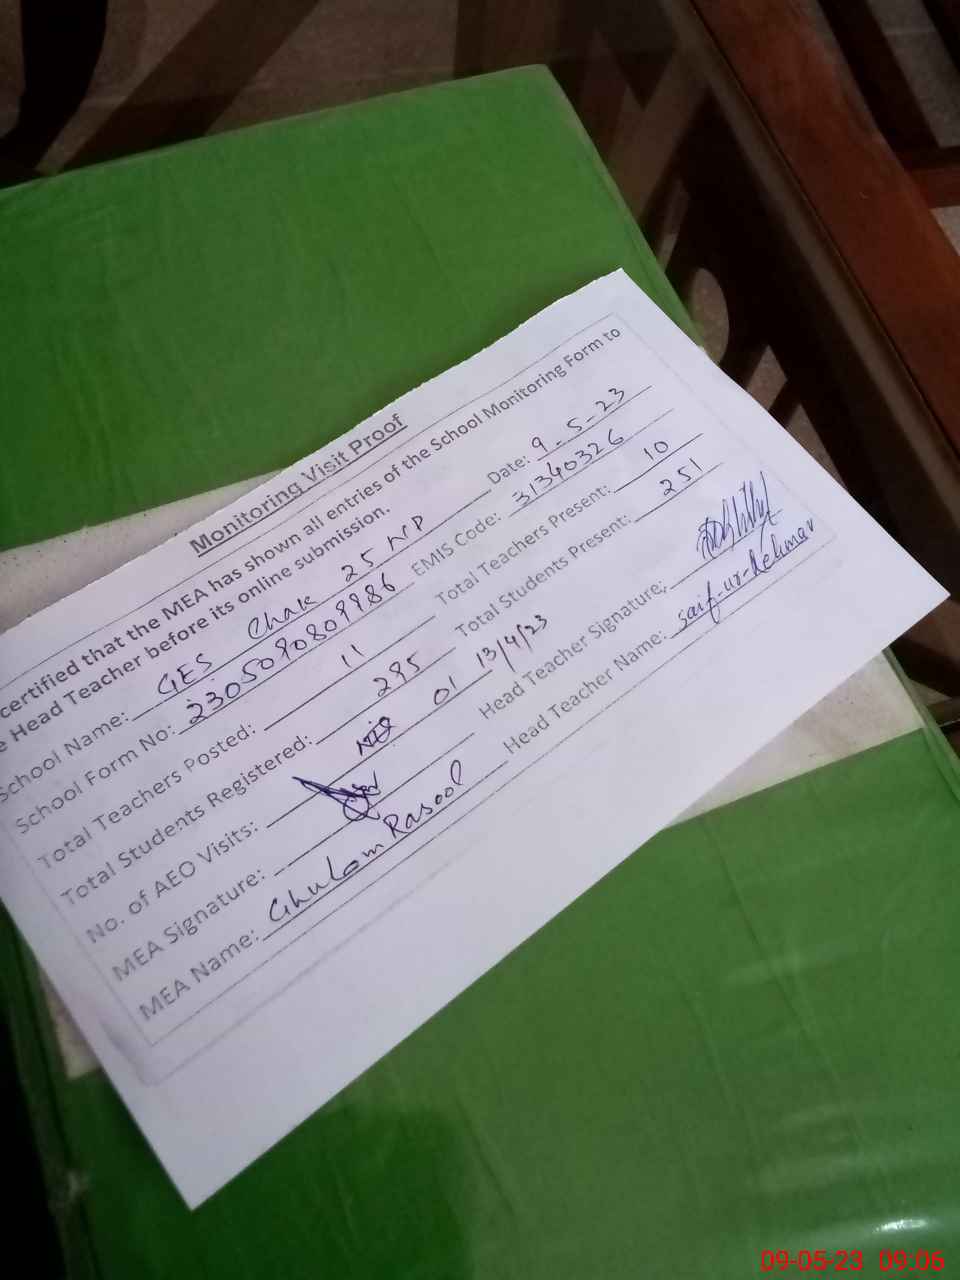 Monitoring Visit Proof
certified that the MEA has shown all entries of the School Monitoring Form to
Head Teacher before its online submission.
Date: 9-5-23
School Name: GES Chak 25 NP
School Form No: EMIS Code: 31340326
Total Teachers Posted: 11 Total Teachers Present: 10
Total Students Registered: 295 Total Students Present: 251
No. of AEO Visits: 01 13/4/23
MEA Signature: Head Teacher Signature:
MEA Name: Ghulam Rasool Head Teacher Name: Saif-ur-Rehman
09-05-23 09:06